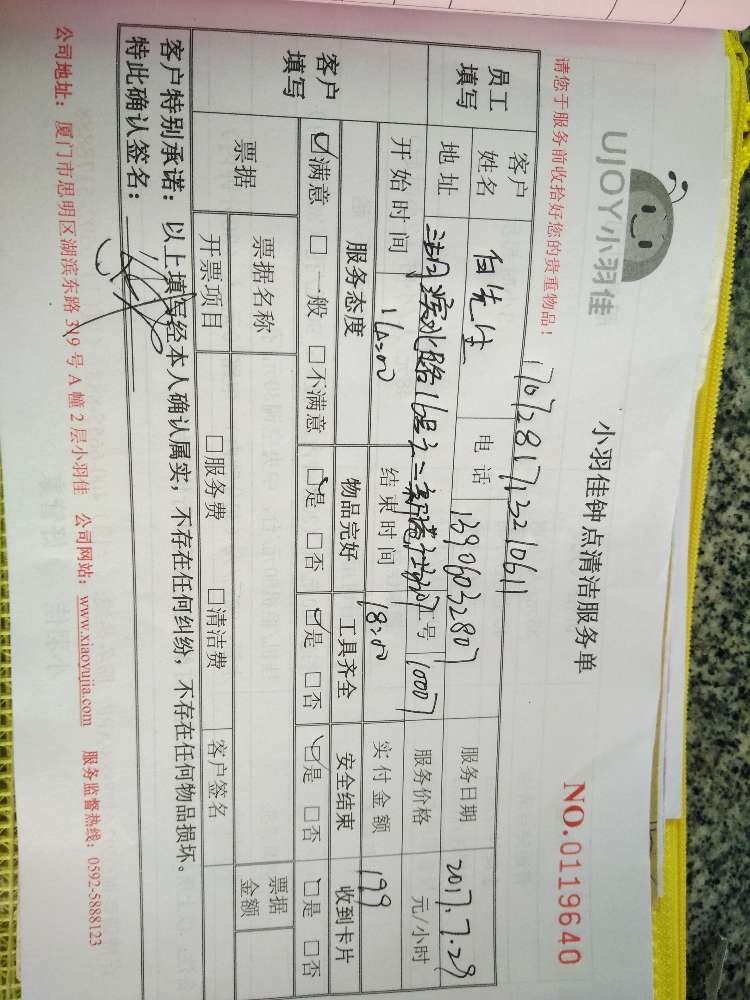 UJOY小羽佳
小羽佳钟点清洁服务单
NO.0119640
请您于服务前收拾好您的贵重物品！
17072817132210611
员工填写
客户姓名 白先生 电话 13906032807 服务日期 2017.7.29
地址 号 10007 服务价格 元/小时
开始时间 14:00 结束时间 18:00 实付金额 199
客户填写
服务态度 物品完好 工具齐全 安全结束 收到卡片
☑满意 □一般 □不满意 ☑是 □否 ☑是 □否 ☑是 □否 □是 □否
票据 票据名称 票据金额
开票项目 □服务费 □清洁费 客户签名
客户特别承诺：以上填写经本人确认属实，不存在任何纠纷，不存在任何物品损坏。
特此确认签名：
公司地址：厦门市思明区湖滨东路 319 号 A 幢 2 层小羽佳 公司网站：www.xiaoyujia.com 服务监督热线：0592-5888123